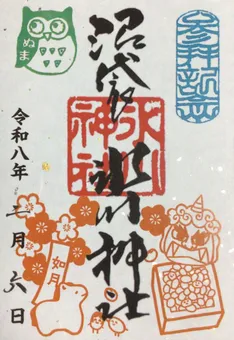 参拝記念
沼袋氷川神社
氷川神社
ぬま
令和八年二月六日
如月